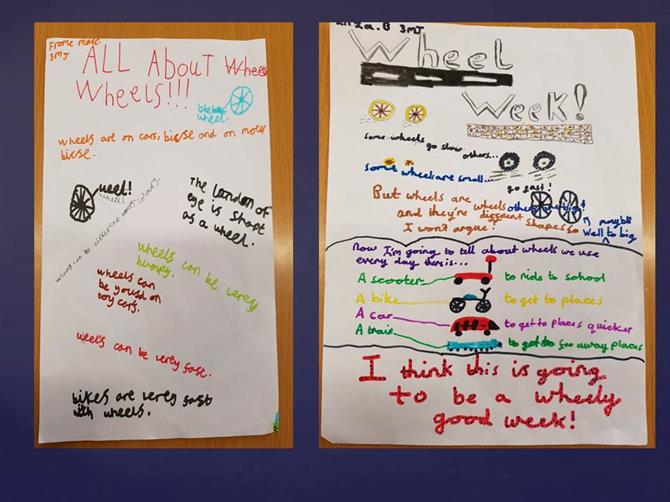 Frome Marc
3MJ
ALL ABOUT Wheels
Wheels!!!
wheel.
wheels are on cars, bicse and on motor
bicse.
weel!
The London of
eye is shapt
as a wheel.
wheels can be verey
bumpy.
wheels can
be yousd on
toy cars.
weels can be verey fast.
bikes are verey fast
with wheels.
Eliza.B 3MJ
Wheel
Week!
some wheels go slow others...
go fast!
some wheels are small...
But wheels are wheels
and they're different shapes so
I won't argue!
maybe
well to big
Now I'm going to tell about wheels we use
every day there is...
A scooter to ride to school
A bike to get to places
A car to get to places quicker
A train to get to far away places
I think this is going
to be a wheely
good week!